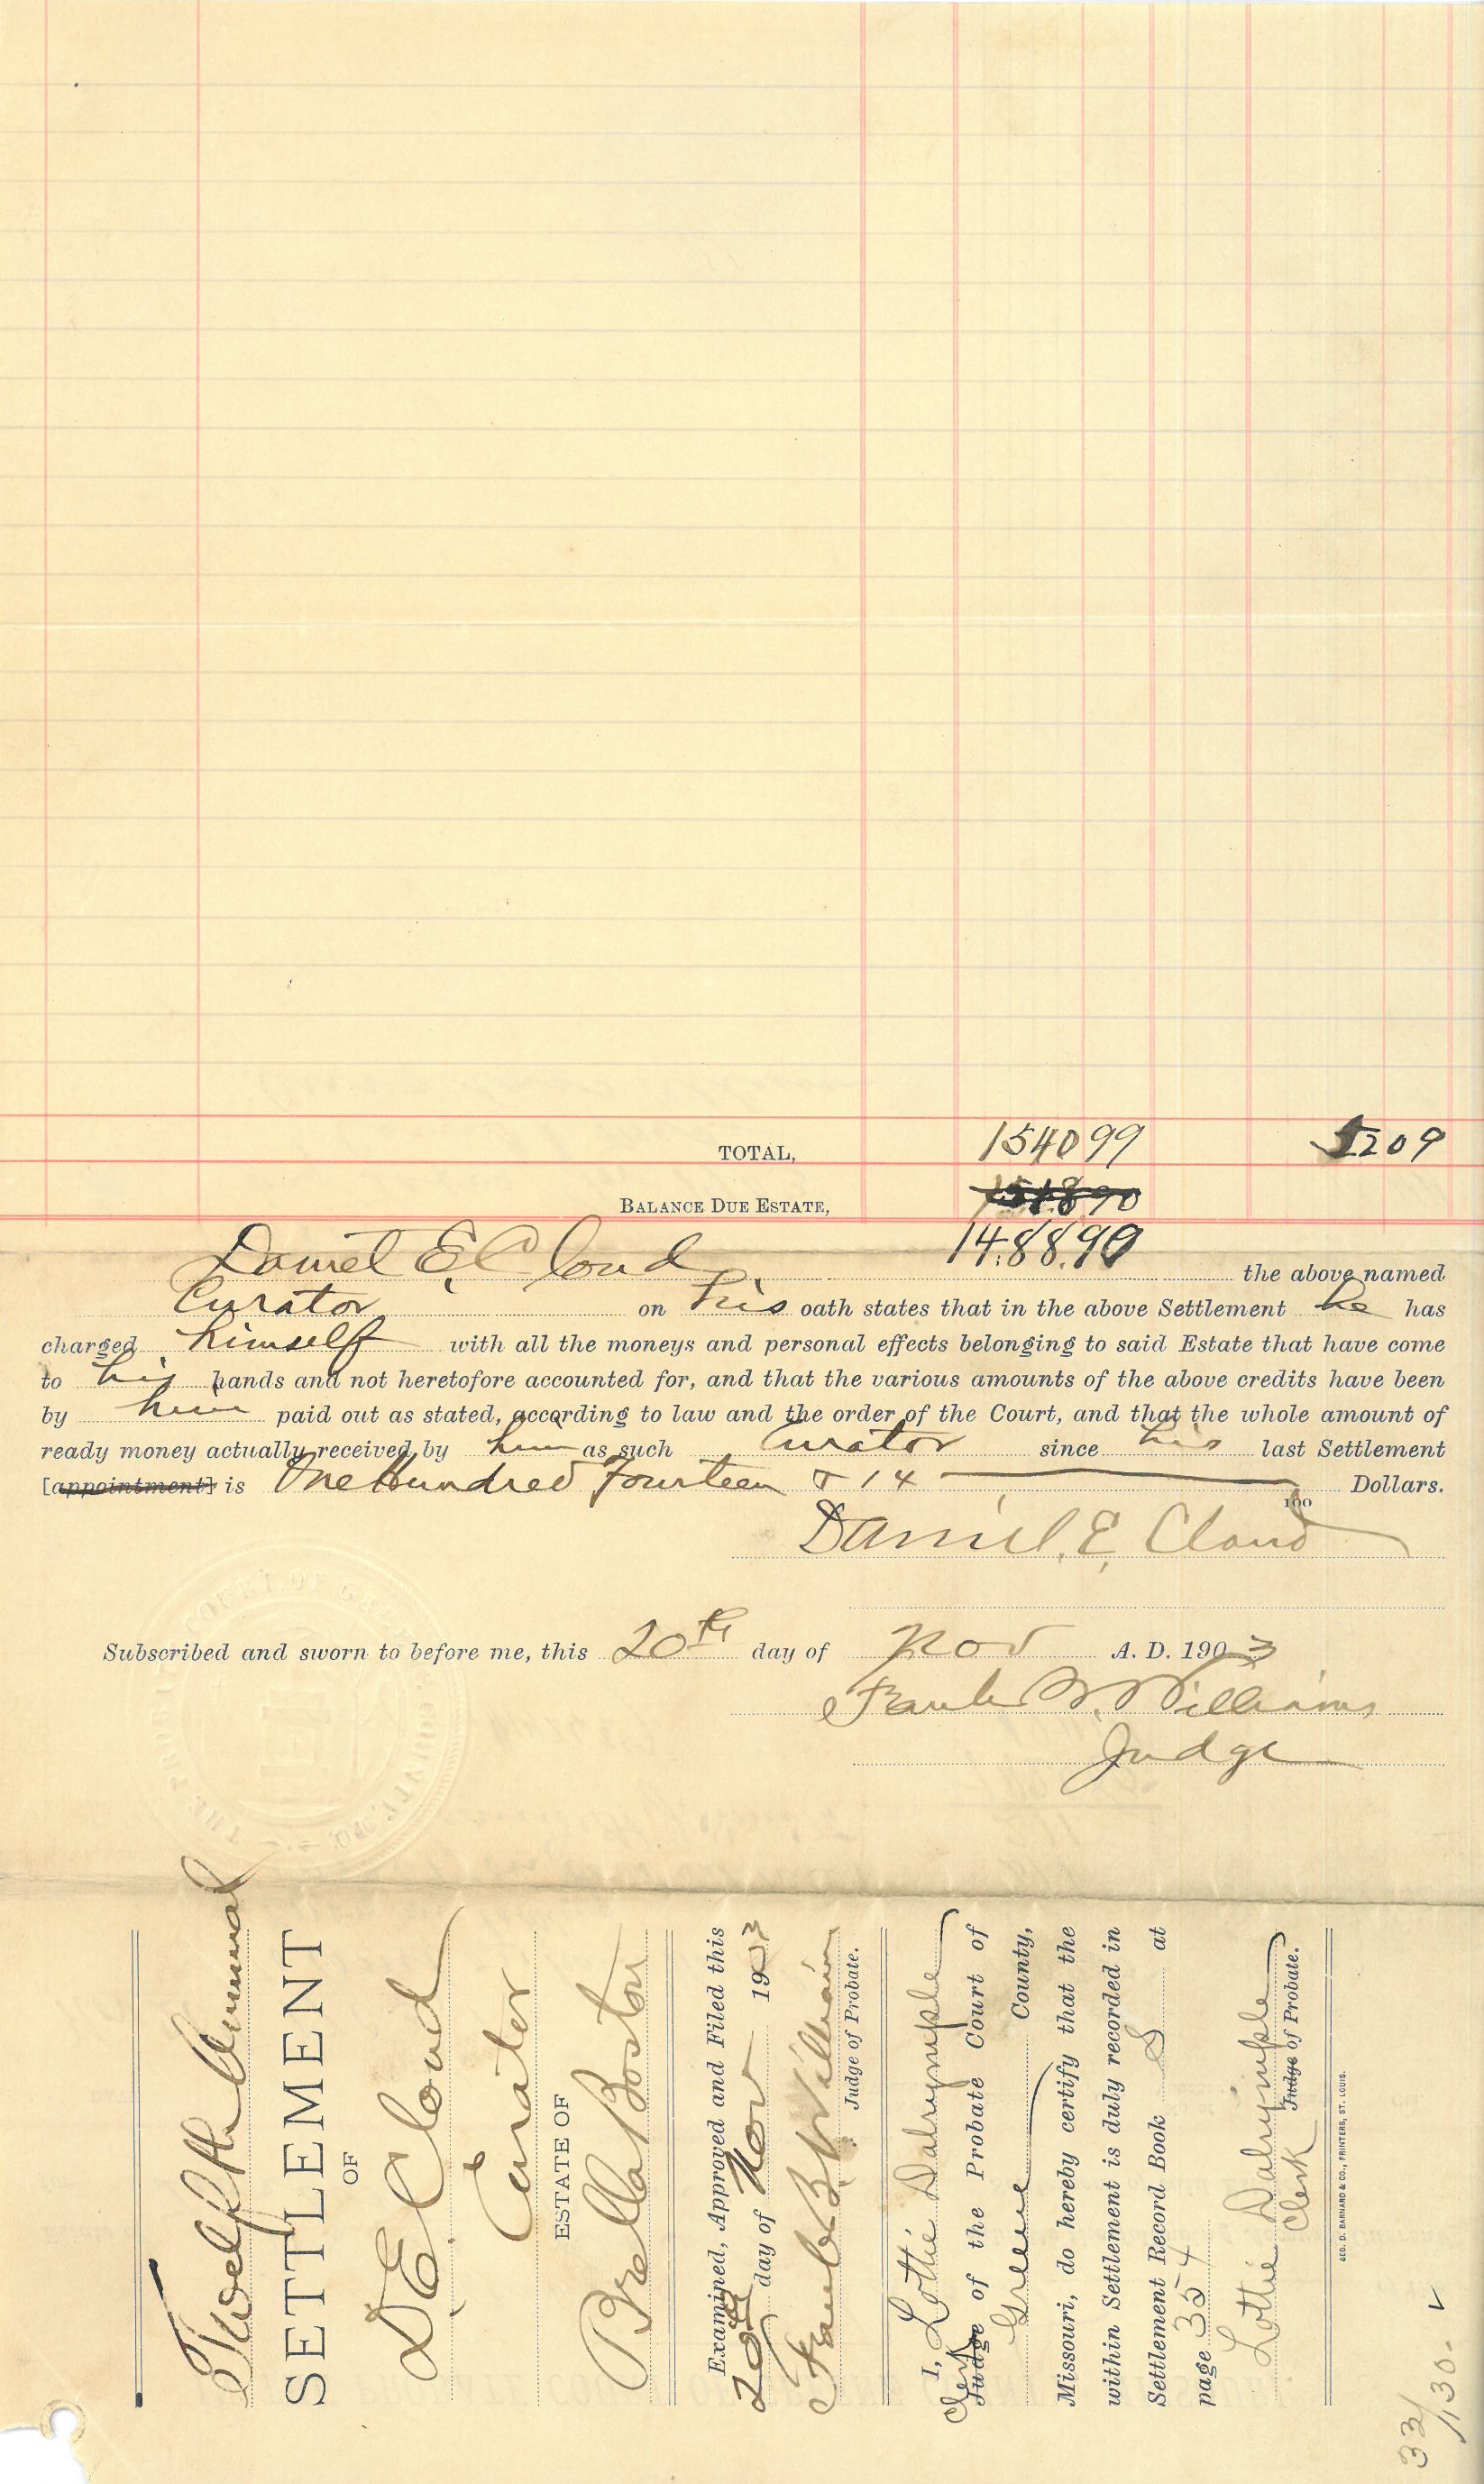 TOTAL, 154099 5209
BALANCE DUE ESTATE, 151890
1488.90
Daniel E. Cloud the above named
Curator on his oath states that in the above Settlement he has
charged himself with all the moneys and personal effects belonging to said Estate that have come
to his hands and not heretofore accounted for, and that the various amounts of the above credits have been
by him paid out as stated, according to law and the order of the Court, and that the whole amount of
ready money actually received by him as such Curator since his last Settlement
[appointment] is One Hundred Fourteen & 14 100 Dollars.
Daniel. E. Cloud
Subscribed and sworn to before me, this 20th day of Nov A. D. 1903
Frank B. Williams
Judge
THE PRO COURT OF GREENE COUNTY, MO.
Twelfth Annual
SETTLEMENT
OF
D. E. Cloud
Curator
ESTATE OF
Orella Boston
Examined, Approved and Filed this
20th day of Nov 1903
Frank B. Williams
Judge of Probate.
I, Lottie Dalrymple
Clerk Judge of the Probate Court of
Greene County,
Missouri, do hereby certify that the
within Settlement is duly recorded in
Settlement Record Book S at
page 354
Lottie Dalrymple
Clerk Judge of Probate.
GEO. D. BARNARD & CO., PRINTERS, ST. LOUIS.
33/